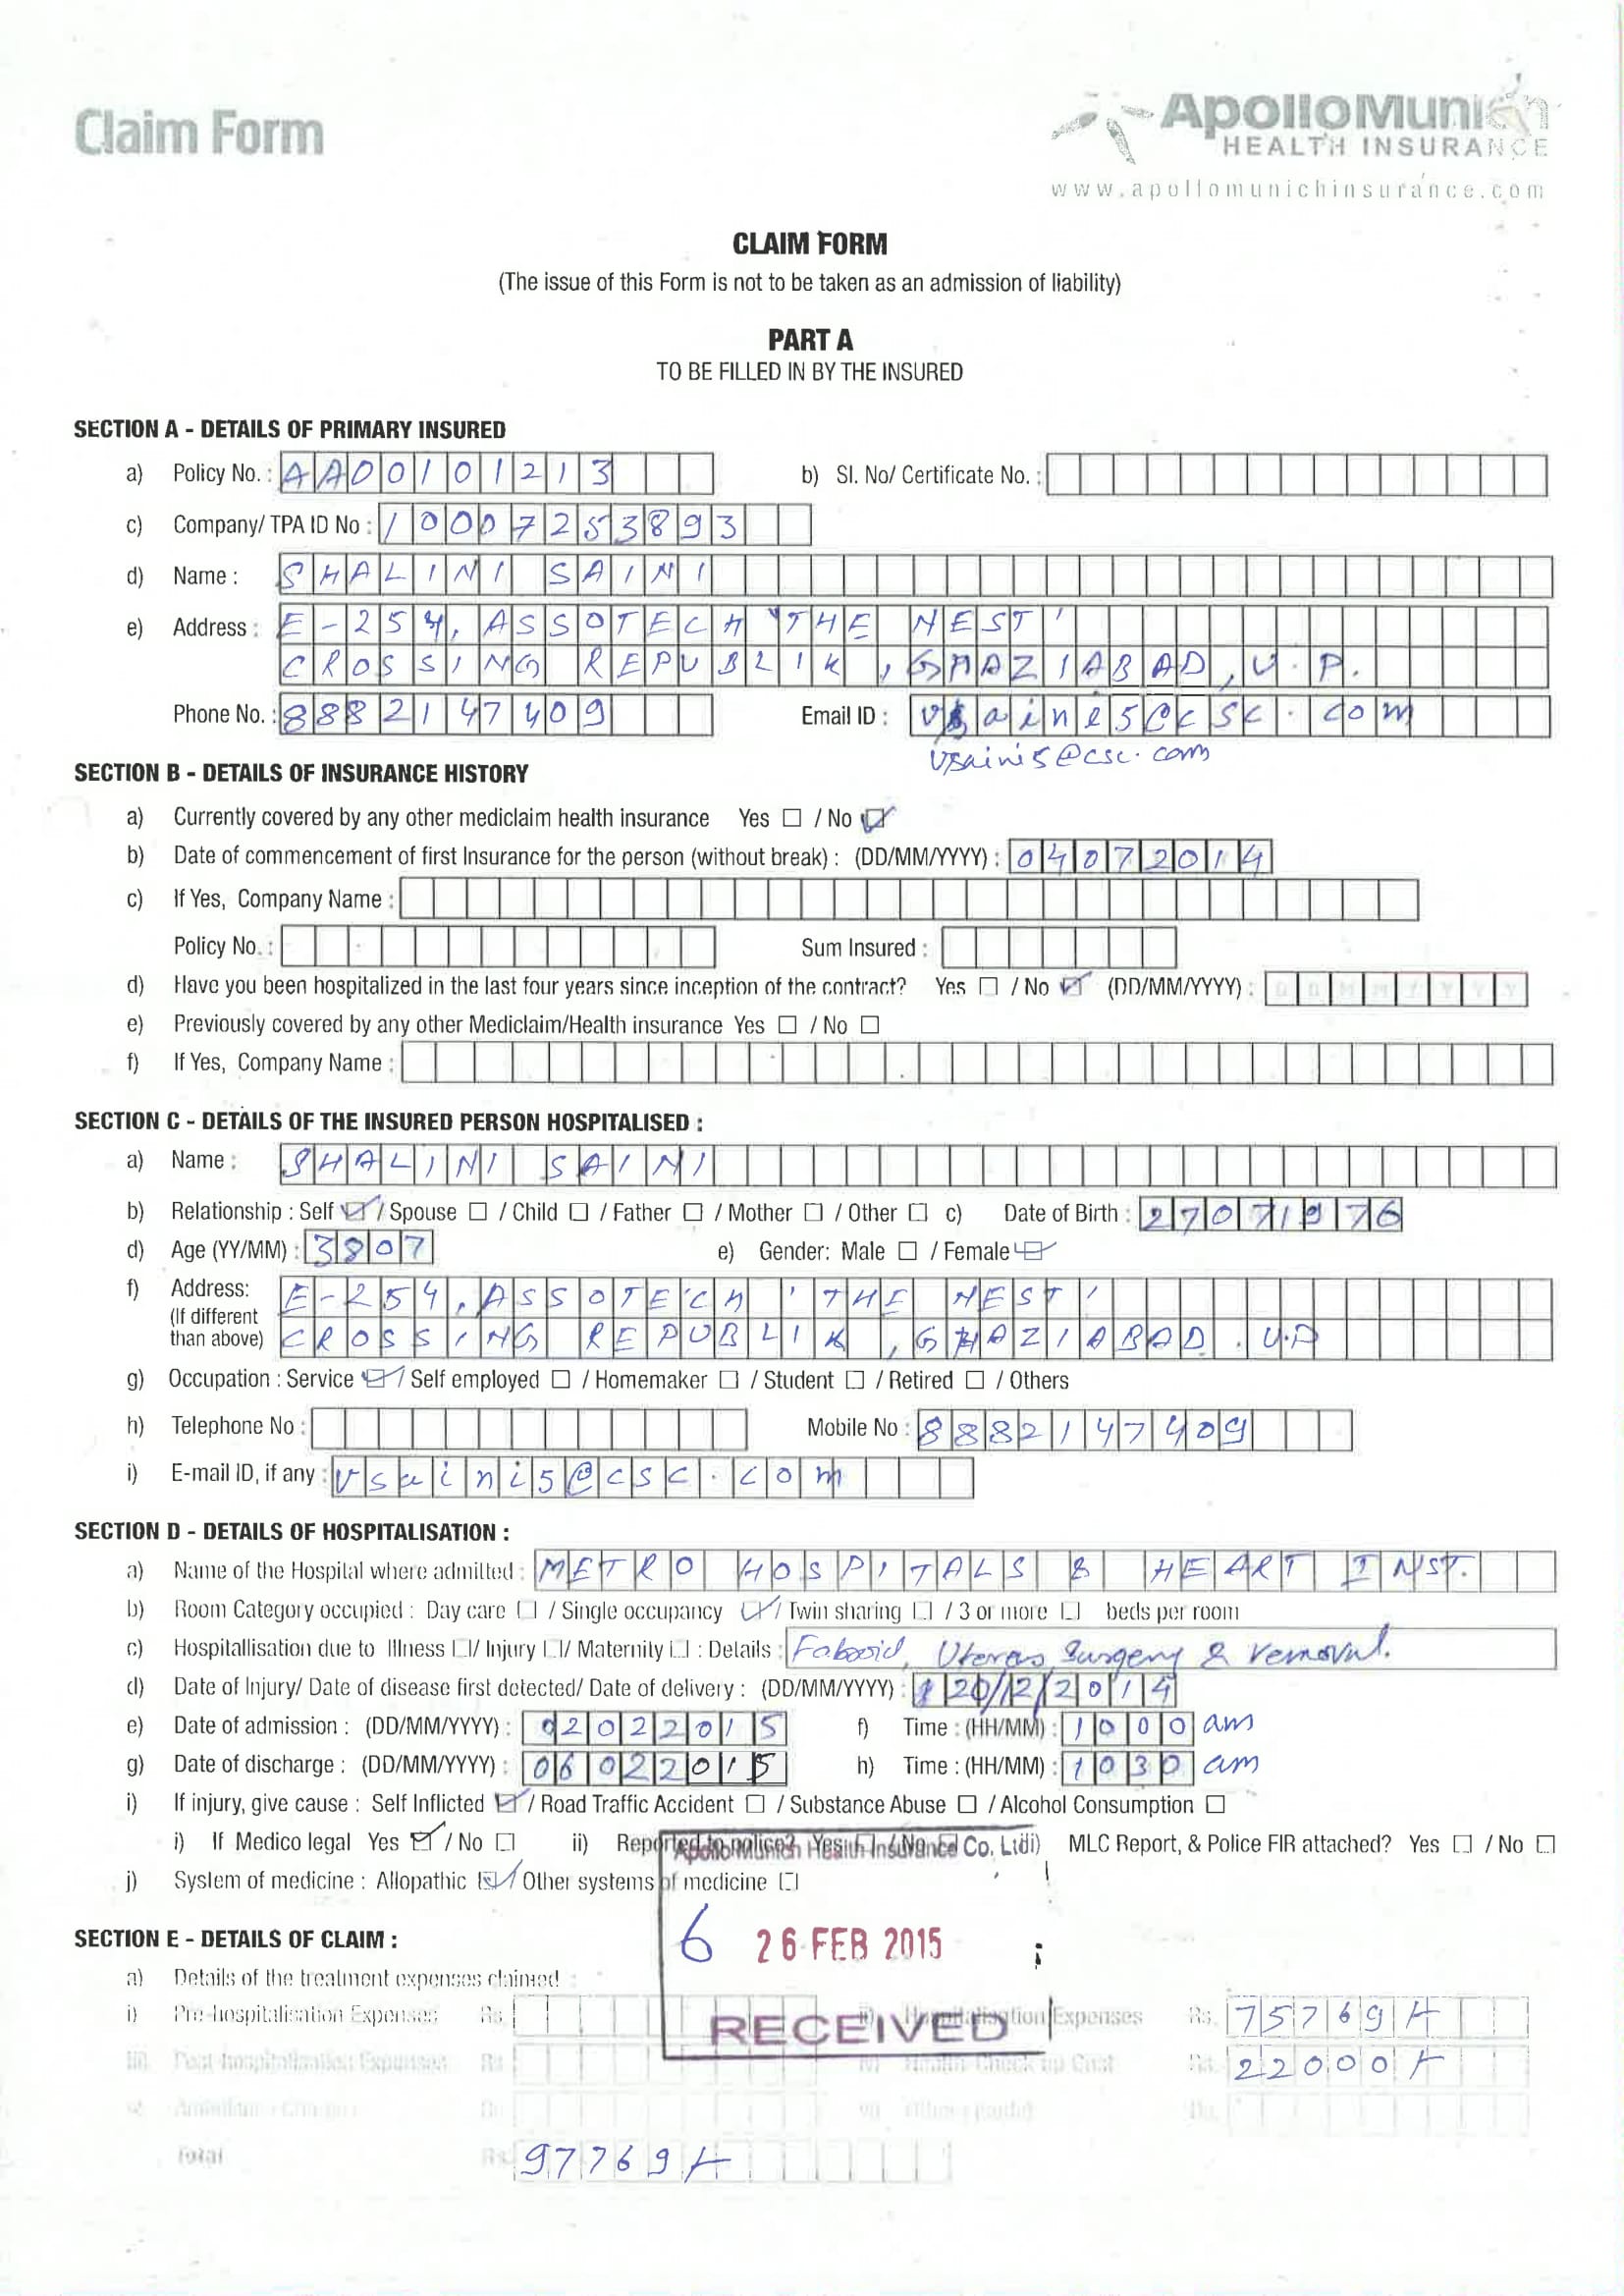 Claim Form
ApolloMunich
HEALTH INSURANCE
www.apollomunichinsurance.com
CLAIM FORM
(The issue of this Form is not to be taken as an admission of liability)
PART A
TO BE FILLED IN BY THE INSURED
SECTION A - DETAILS OF PRIMARY INSURED
a) Policy No. : AA00101213 b) Sl. No/ Certificate No. :
c) Company/ TPA ID No : 10007253893
d) Name : SHALINI SAINI
e) Address : E-254, ASSOTECH 'THE NEST'
CROSSING REPUBLIK, GHAZIABAD, U.P.
Phone No. : 8882147409 Email ID : vsaini5@csc.com
vsaini5@csc.com
SECTION B - DETAILS OF INSURANCE HISTORY
a) Currently covered by any other mediclaim health insurance Yes ☐ / No ☑
b) Date of commencement of first Insurance for the person (without break) : (DD/MM/YYYY) : 04072014
c) If Yes, Company Name :
Policy No. : Sum Insured :
d) Have you been hospitalized in the last four years since inception of the contract? Yes ☐ / No ☑ (DD/MM/YYYY) : D D M M Y Y Y Y
e) Previously covered by any other Mediclaim/Health insurance Yes ☐ / No ☐
f) If Yes, Company Name :
SECTION C - DETAILS OF THE INSURED PERSON HOSPITALISED :
a) Name : SHALINI SAINI
b) Relationship : Self ☑ / Spouse ☐ / Child ☐ / Father ☐ / Mother ☐ / Other ☐ c) Date of Birth : 27071976
d) Age (YY/MM) : 3807 e) Gender: Male ☐ / Female ☑
f) Address: E-254, ASSOTECH 'THE NEST'
(If different
than above) CROSSING REPUBLIK, GHAZIABAD. U.P
g) Occupation : Service ☑ / Self employed ☐ / Homemaker ☐ / Student ☐ / Retired ☐ / Others
h) Telephone No : Mobile No : 8882147409
i) E-mail ID, if any : vsaini5@csc.com
SECTION D - DETAILS OF HOSPITALISATION :
a) Name of the Hospital where admitted : METRO HOSPITALS & HEART INST.
b) Room Category occupied : Day care ☐ / Single occupancy ☑ / Twin sharing ☐ / 3 or more ☐ beds per room
c) Hospitallisation due to Illness ☐/ Injury ☐/ Maternity ☐ : Details : Uterus Surgery & removal.
d) Date of Injury/ Date of disease first detected/ Date of delivery : (DD/MM/YYYY) : 20/12/2014
e) Date of admission : (DD/MM/YYYY) : 02022015 f) Time : (HH/MM) : 1000 am
g) Date of discharge : (DD/MM/YYYY) : 06022015 h) Time : (HH/MM) : 1030 am
i) If injury, give cause : Self Inflicted ☑ / Road Traffic Accident ☐ / Substance Abuse ☐ / Alcohol Consumption ☐
i) If Medico legal Yes ☑ / No ☐ ii) Reported to police? Yes ☐ / No ☐ iii) MLC Report, & Police FIR attached? Yes ☐ / No ☐
Apollo Munich Health Insurance Co. Ltd
j) System of medicine : Allopathic ☑ / Other systems of medicine ☐
6 26 FEB 2015
RECEIVED
SECTION E - DETAILS OF CLAIM :
a) Details of the treatment expenses claimed :
i) Pre-hospitalisation Expenses Rs. ii) Hospitalisation Expenses Rs. 75769/-
iii) Post-hospitalisation Expenses Rs. iv) Health Check up Cost Rs. 22000/-
Total Rs. 97769/-